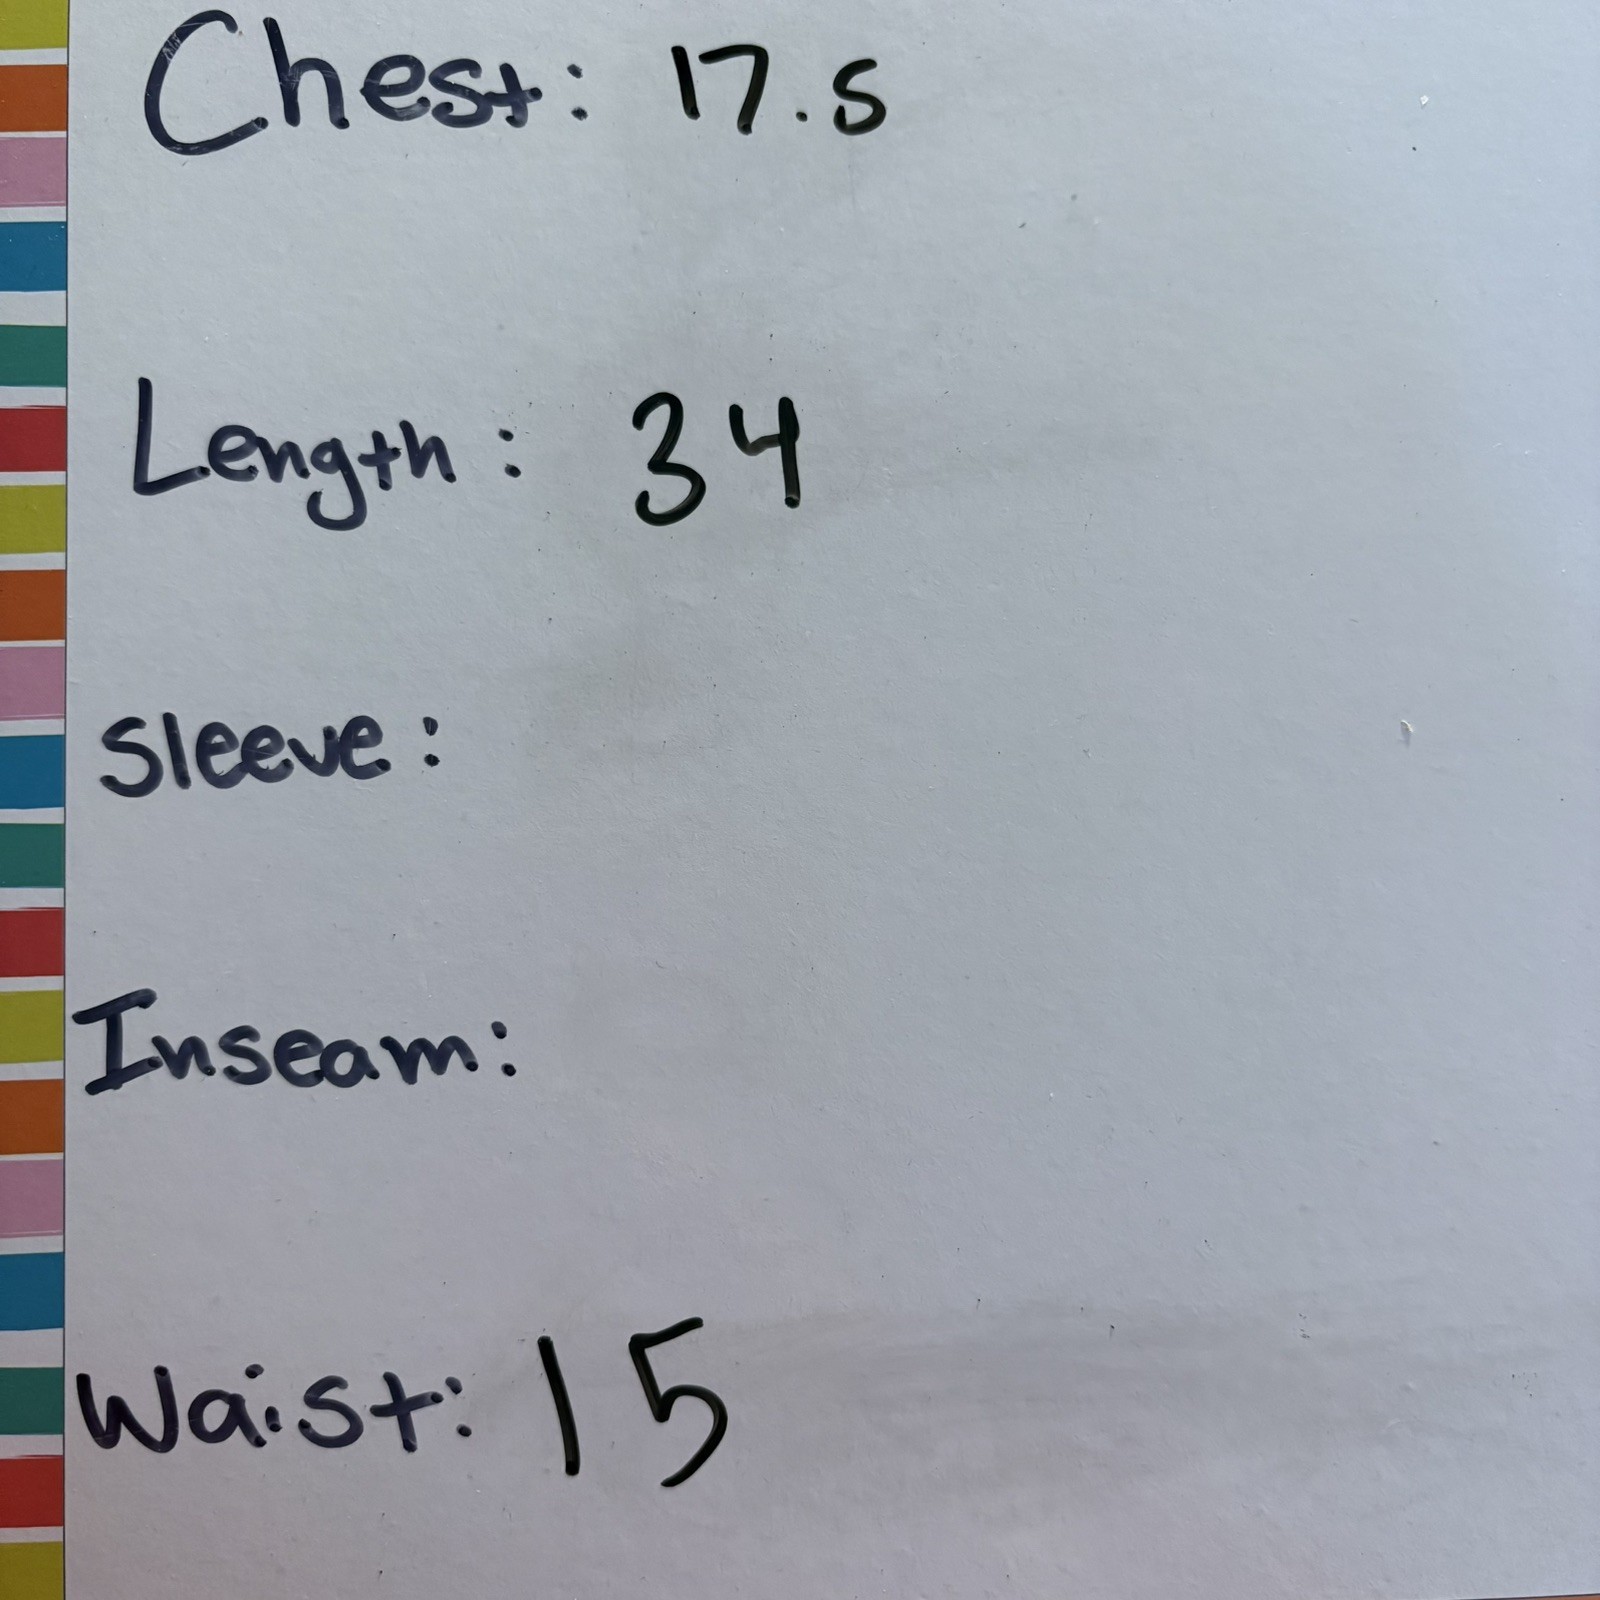 Chest: 17.5
Length: 34
Sleeve:
Inseam:
Waist: 15